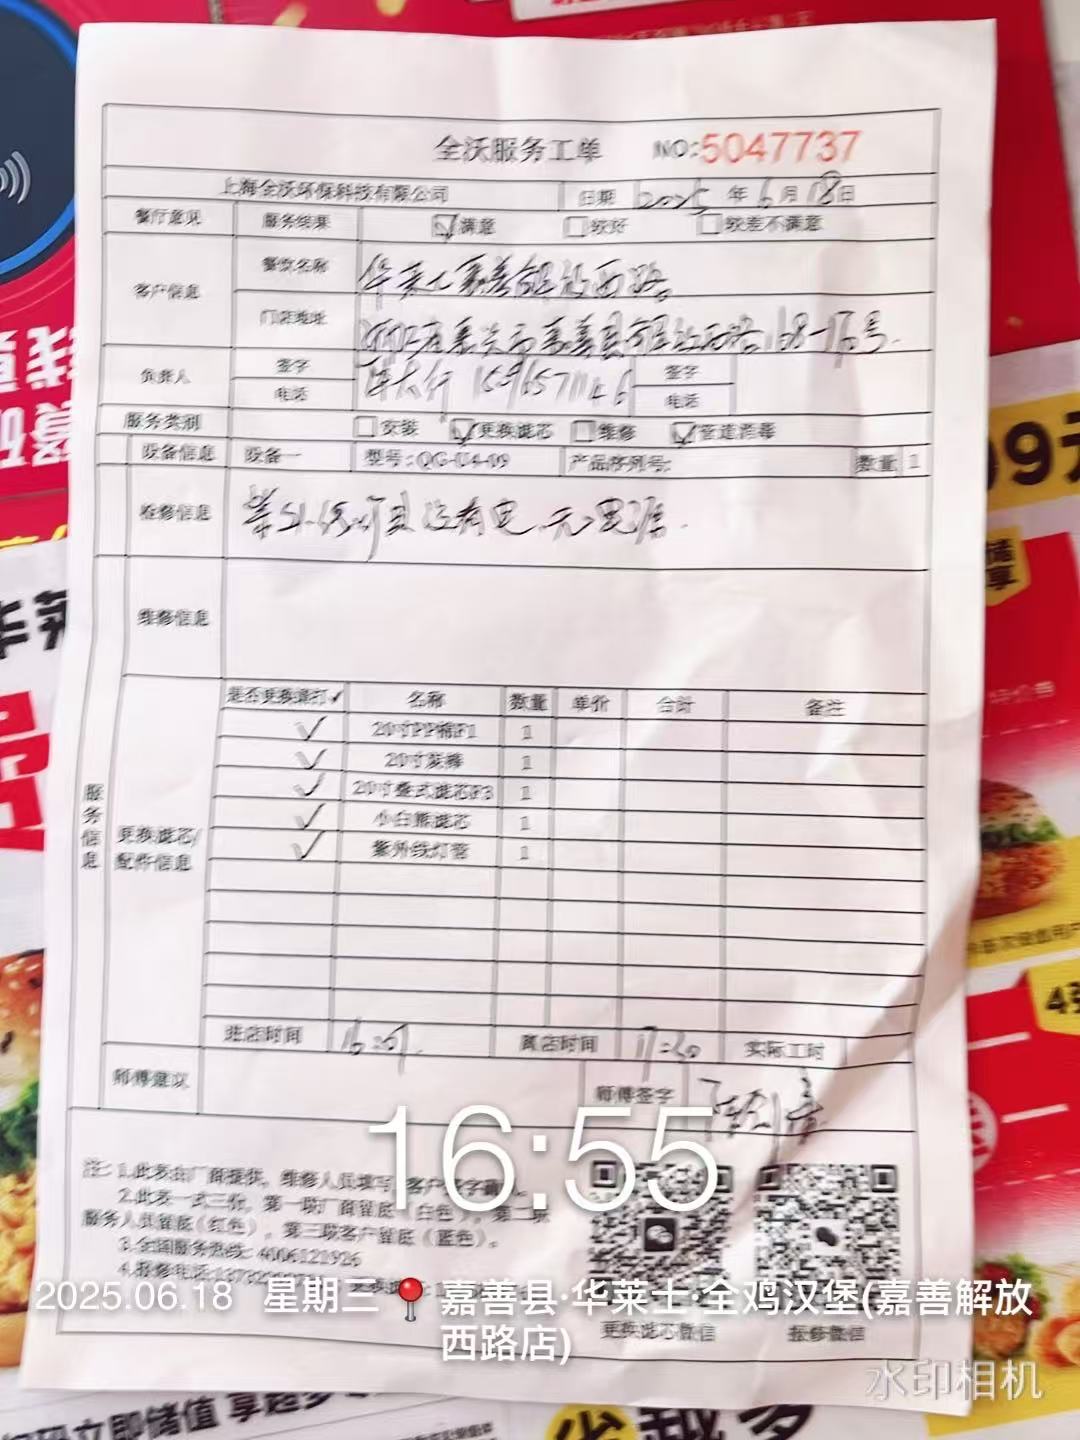 全沃服务工单 NO:5047737
上海全沃环保科技有限公司 日期 2025 年 6 月 18 日
餐厅意见 服务结果 满意 较好 较差不满意
客户信息 餐饮名称 华莱士嘉善
门店地址 嘉兴市嘉善县 168-176号
负责人 签字 签字
电话 15965711146 电话
服务类别 安装 更换滤芯 维修 管道消毒
设备信息 设备一 型号:QG-U4-09 产品序列号: 数量 1
检修信息 没有电 无电源.
维修信息
是否更换请打✓ 名称 数量 单价 合计 备注
✓ 20寸PP棉F1 1
✓ 20寸炭棒 1
✓ 20寸叠式滤芯F3 1
✓ 小白熊滤芯 1
✓ 紫外线灯管 1
服务信息
更换滤芯/
配件信息
进店时间 离店时间 17:20 实际工时
师傅建议 师傅签字
16:55
注: 1.此表由厂商提供, 维修人员填写
2.此表一式三份, 第一联厂商留底(白色), 第二联
服务人员留底(红色), 第三联客户留底(蓝色)。
3.全国服务热线: 4006121926
4.报修电话:
2025.06.18 星期三 嘉善县·华莱士·全鸡汉堡(嘉善解放
西路店)
更换滤芯微信 报修微信
水印相机
99元
4张
立即储值 享超多
省越多